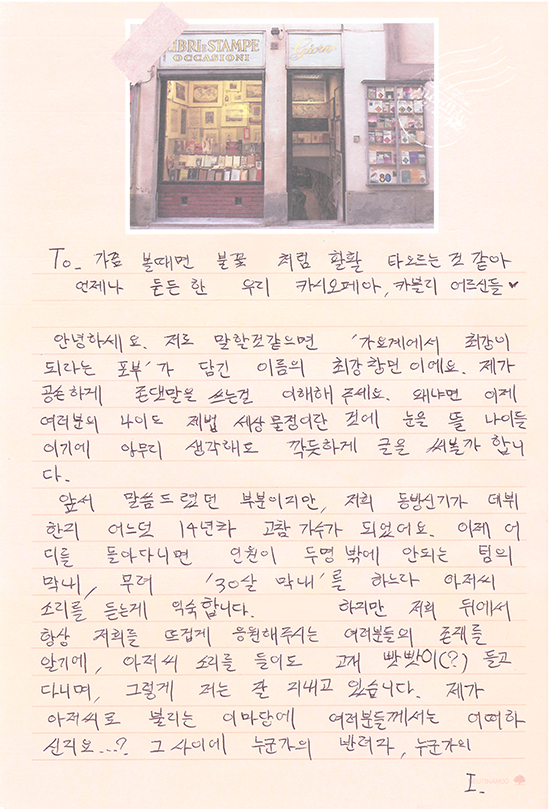 LIBRI E STAMPE
OCCASIONI
To. 가끔 볼때면 불꽃 처럼 활활 타오르는 것 같아
언제나 든든한 우리 카시오페아, 카블리 어르신들 ♥
안녕하세요. 저로 말할것같으면 '가요계에서 최강이
되라는 포부'가 담긴 이름의 최강창민이에요. 제가
공손하게 존댓말을 쓰는건 이해해 주세요. 왜냐면 이제
여러분의 나이도 제법 세상물정이란 것에 눈을 뜰 나이들
이기에 아무리 생각해도 깍듯하게 글을 써볼까 합니
다.
앞서 말씀드렸던 부분이지만, 저희 동방신기가 데뷔
한지 어느덧 14년차 고참 가수가 되었어요. 이제 어
디를 돌아다니면 인원이 두명밖에 안되는 팀의
막내, 무려 '30살 막내'를 하느라 아저씨
소리를 듣는게 익숙합니다. 하지만 저희 뒤에서
항상 저희를 뜨겁게 응원해주시는 여러분들의 존재를
알기에, 아저씨 소리를 들어도 고개 빳빳이(?) 들고
다니며, 그렇게 저는 잘 지내고 있습니다. 제가
아저씨로 불리는 이마당에 여러분들께서는 어떠하
신지요...? 그 사이에 누군가의 반려자, 누군가의
I.